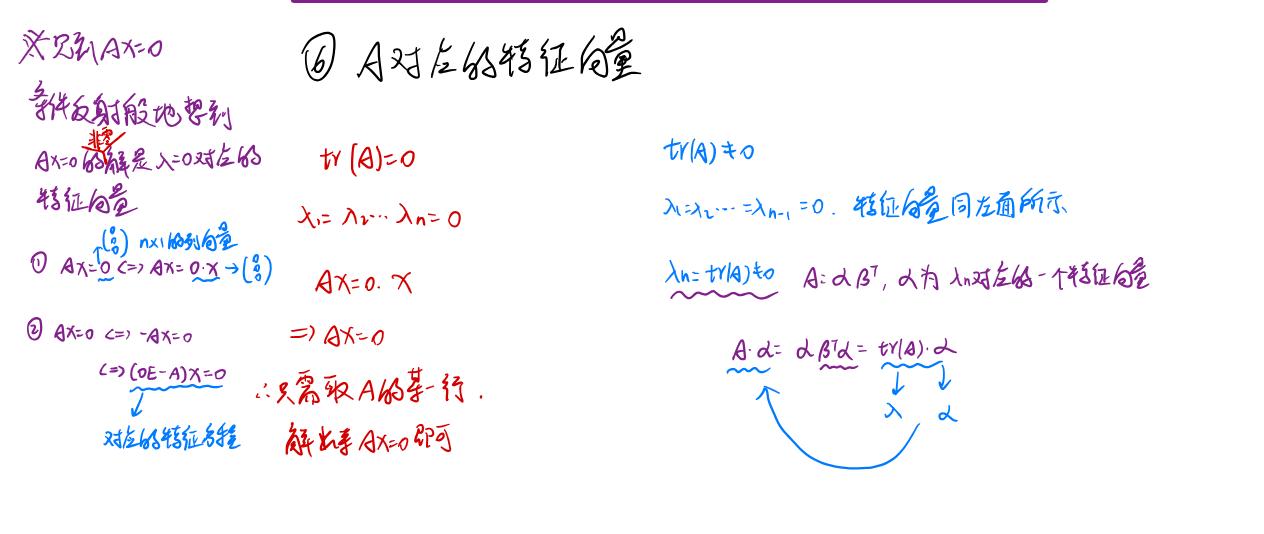 ※见到AX=0
条件反射般地想到
非零
AX=0的解是λ=0对应的
特征向量
(0 0 0) n×1的列向量
① AX=0 <=> AX=0·X → (0 0 0)
② AX=0 <=> -AX=0
<=> (0E-A)X=0
对应的特征方程
⑥ A对应的特征向量
tr(A)=0
λ₁=λ₂…λn=0
AX=0.X
=> AX=0
∴只需取A的某一行.
解出来AX=0即可
tr(A)≠0
λ₁=λ₂…=λn-1=0. 特征向量同左面所示
λn=tr(A)≠0 A=αβᵀ, α为λn对应的一个特征向量
A·α=αβᵀα=tr(A)·α
λ α